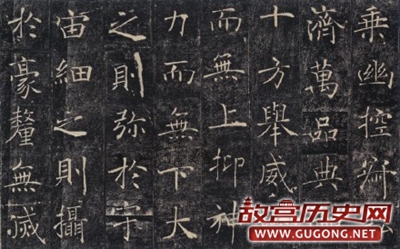 乘幽控寂
濟萬品典
十方舉威
而無上抑神
力而無下大
之則弥於宇
宙細之則攝
於豪釐無滅
故宫历史网
WWW.GUGONG.NET